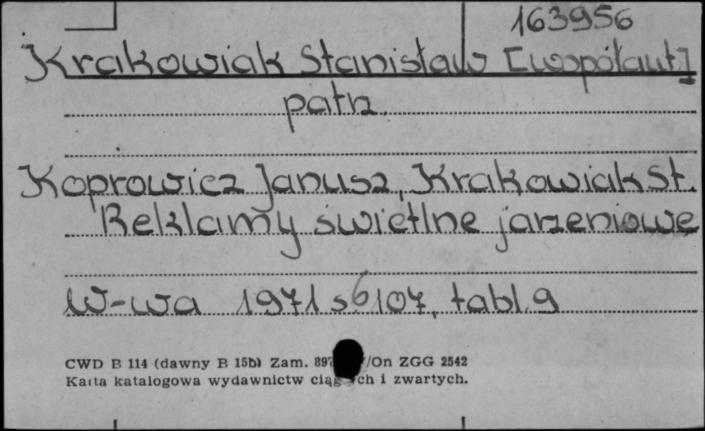 163956
Krakowiak Stanisław [współaut]
patrz
Koprowicz Janusz, Krakowiak St.
Reklamy świetlne jarzeniowe
W-wa 1971 s 107, tabl. 9
CWD B 114 (dawny B 15b) Zam. /On ZGG 2542
Karta katalogowa wydawnictw ch i zwartych.